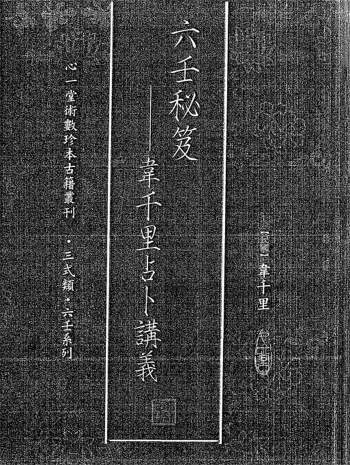 【民國】韋千里
六壬秘笈
——韋千里占卜講義
心一堂術數珍本古籍叢刊 ・三式類・六壬系列